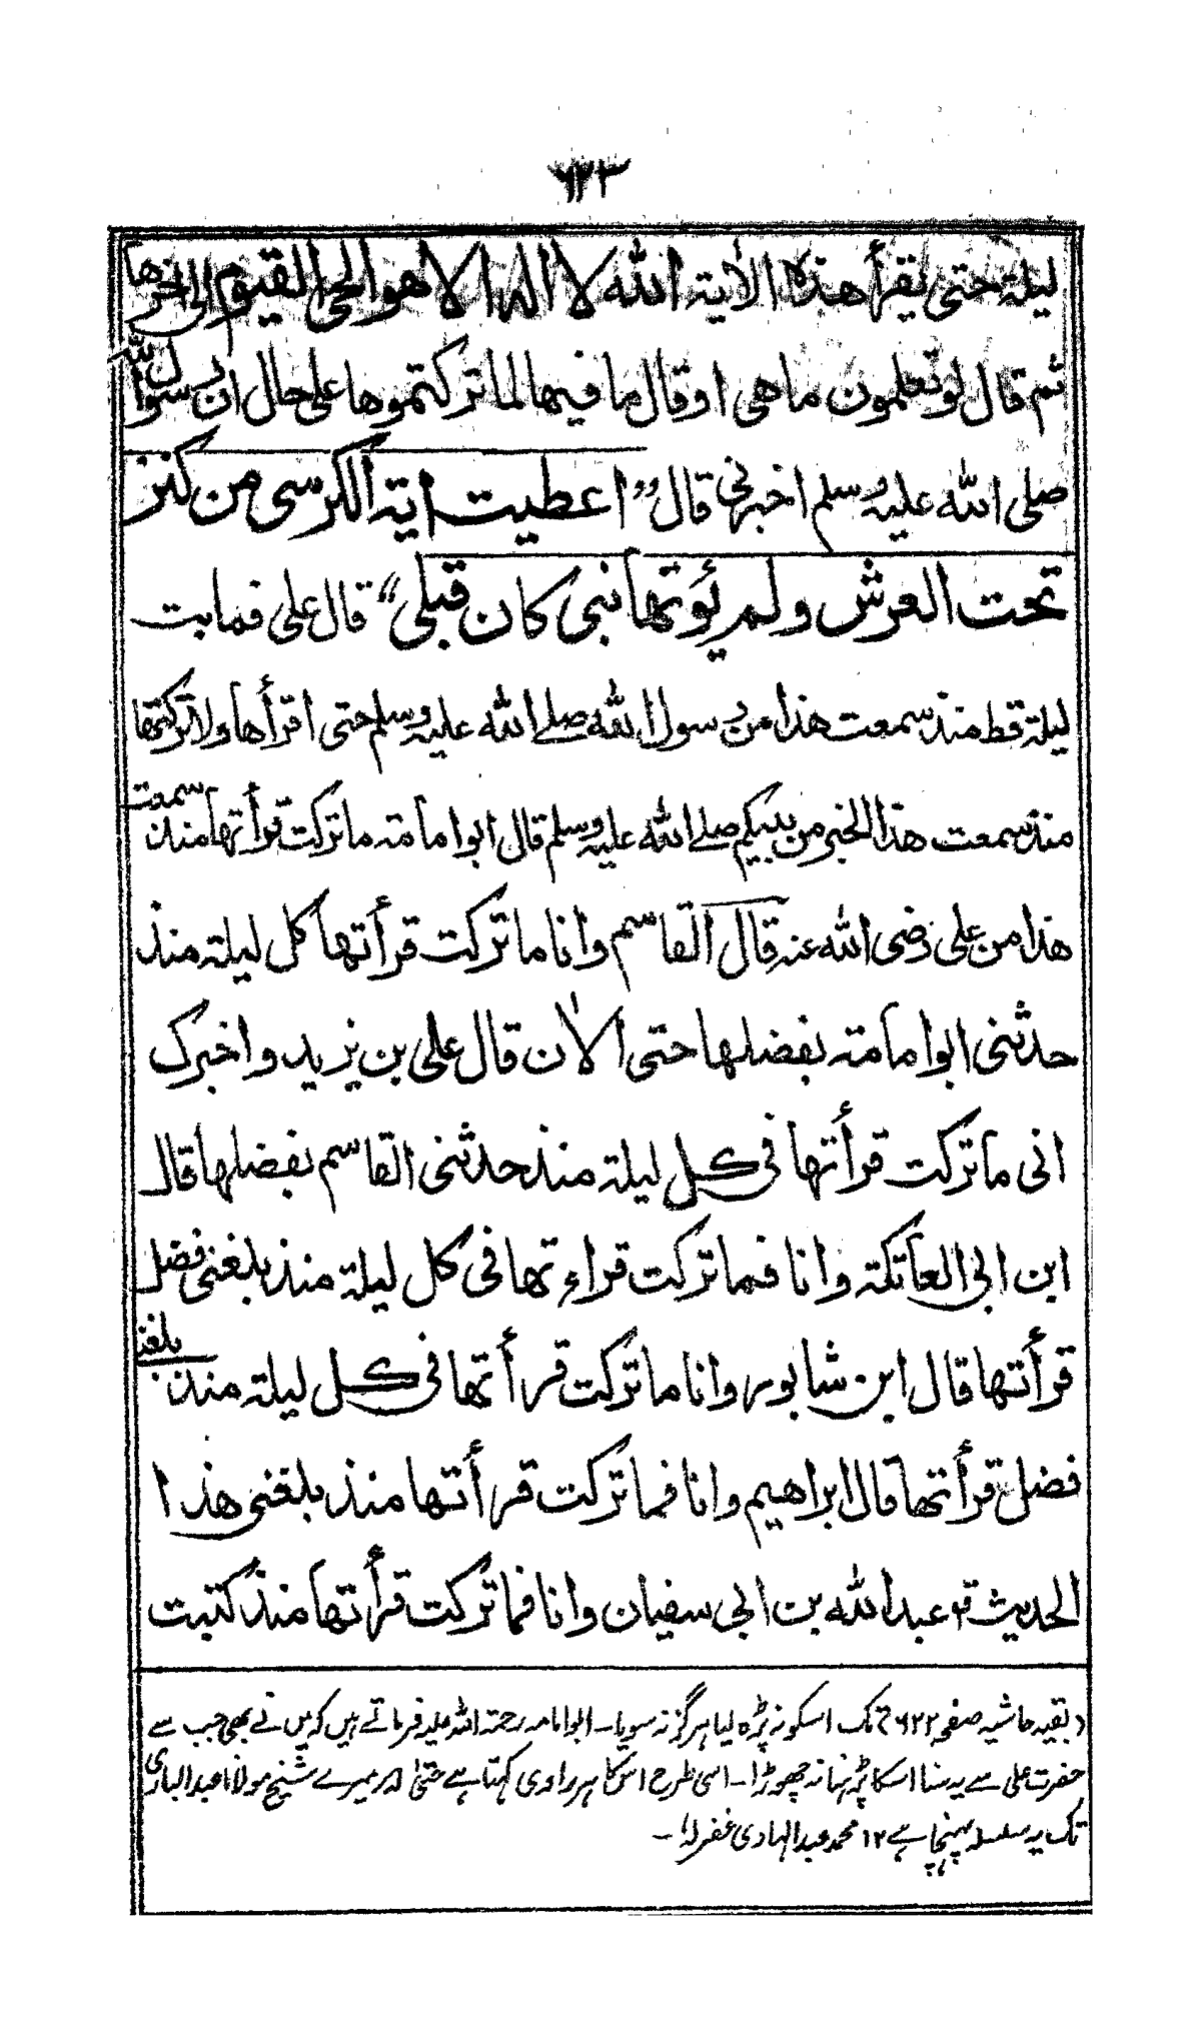 ۶۲۳
ليلة حتى يقرأ هذه الاٰية الله لا اله الا هو الحي القيوم الى اخرها
ثم قال لو تعلمون ما هى او قال ما فيها لما تركتموها على حال ان رسول الله
صلى الله عليه وسلم اخبرنى قال ”اعطيت اية الكرسى من كنز
تحت العرش ولم يؤتها نبى كان قبلى“ قال على فما بت
ليلة قط منذ سمعت هذا من رسول الله صلے الله عليه وسلم حتى اقرأها ولا تركتها
منذ سمعت هذا الخبر من نبيكم صلے الله عليه وسلم قال ابو امامة ما تركت قرأتها منذ سمعت
هذا من على رضى الله عنه قال القاسم وانا ما تركت قرأتها كل ليلة منذ
حدثنى ابو امامة بفضلها حتى الاٰن قال على بن يزيد واخبرك
انى ما تركت قرأتها فى كل ليلة منذ حدثنى القاسم بفضلها قال
ابن ابى العاتكة وانا فما تركت قراءتها فى كل ليلة منذ بلغنى فضل
قرأتها قال ابن شابور وانا ما تركت قرأتها فى كل ليلة منذ بلغنى
فضل قرأتها قال ابراهيم وانا فما تركت قرأتها منذ بلغنى هذا
الحديث قو عبد الله بن ابى سفيان وانا فما تركت قرأتها منذ كتبت
(بقیہ حاشیہ صفحہ ۶۲۲) تک اسکو نہ پڑہ لیا ہرگز نہ سویا۔ ابو امامہ رحمۃ اللہ علیہ فرماتے ہیں کہ میں نے بھی جب سے
حضرت علی سے یہ سنا اسکا پڑہنا نہ چھوڑا۔ اسی طرح اس کا ہر راوی کہتا ہے حتیٰ کہ میرے شیخ مولانا عبدالباری
تک یہ سلسلہ پہنچا ہے ۱۲ محمد عبدالہادی غفرلہٗ۔